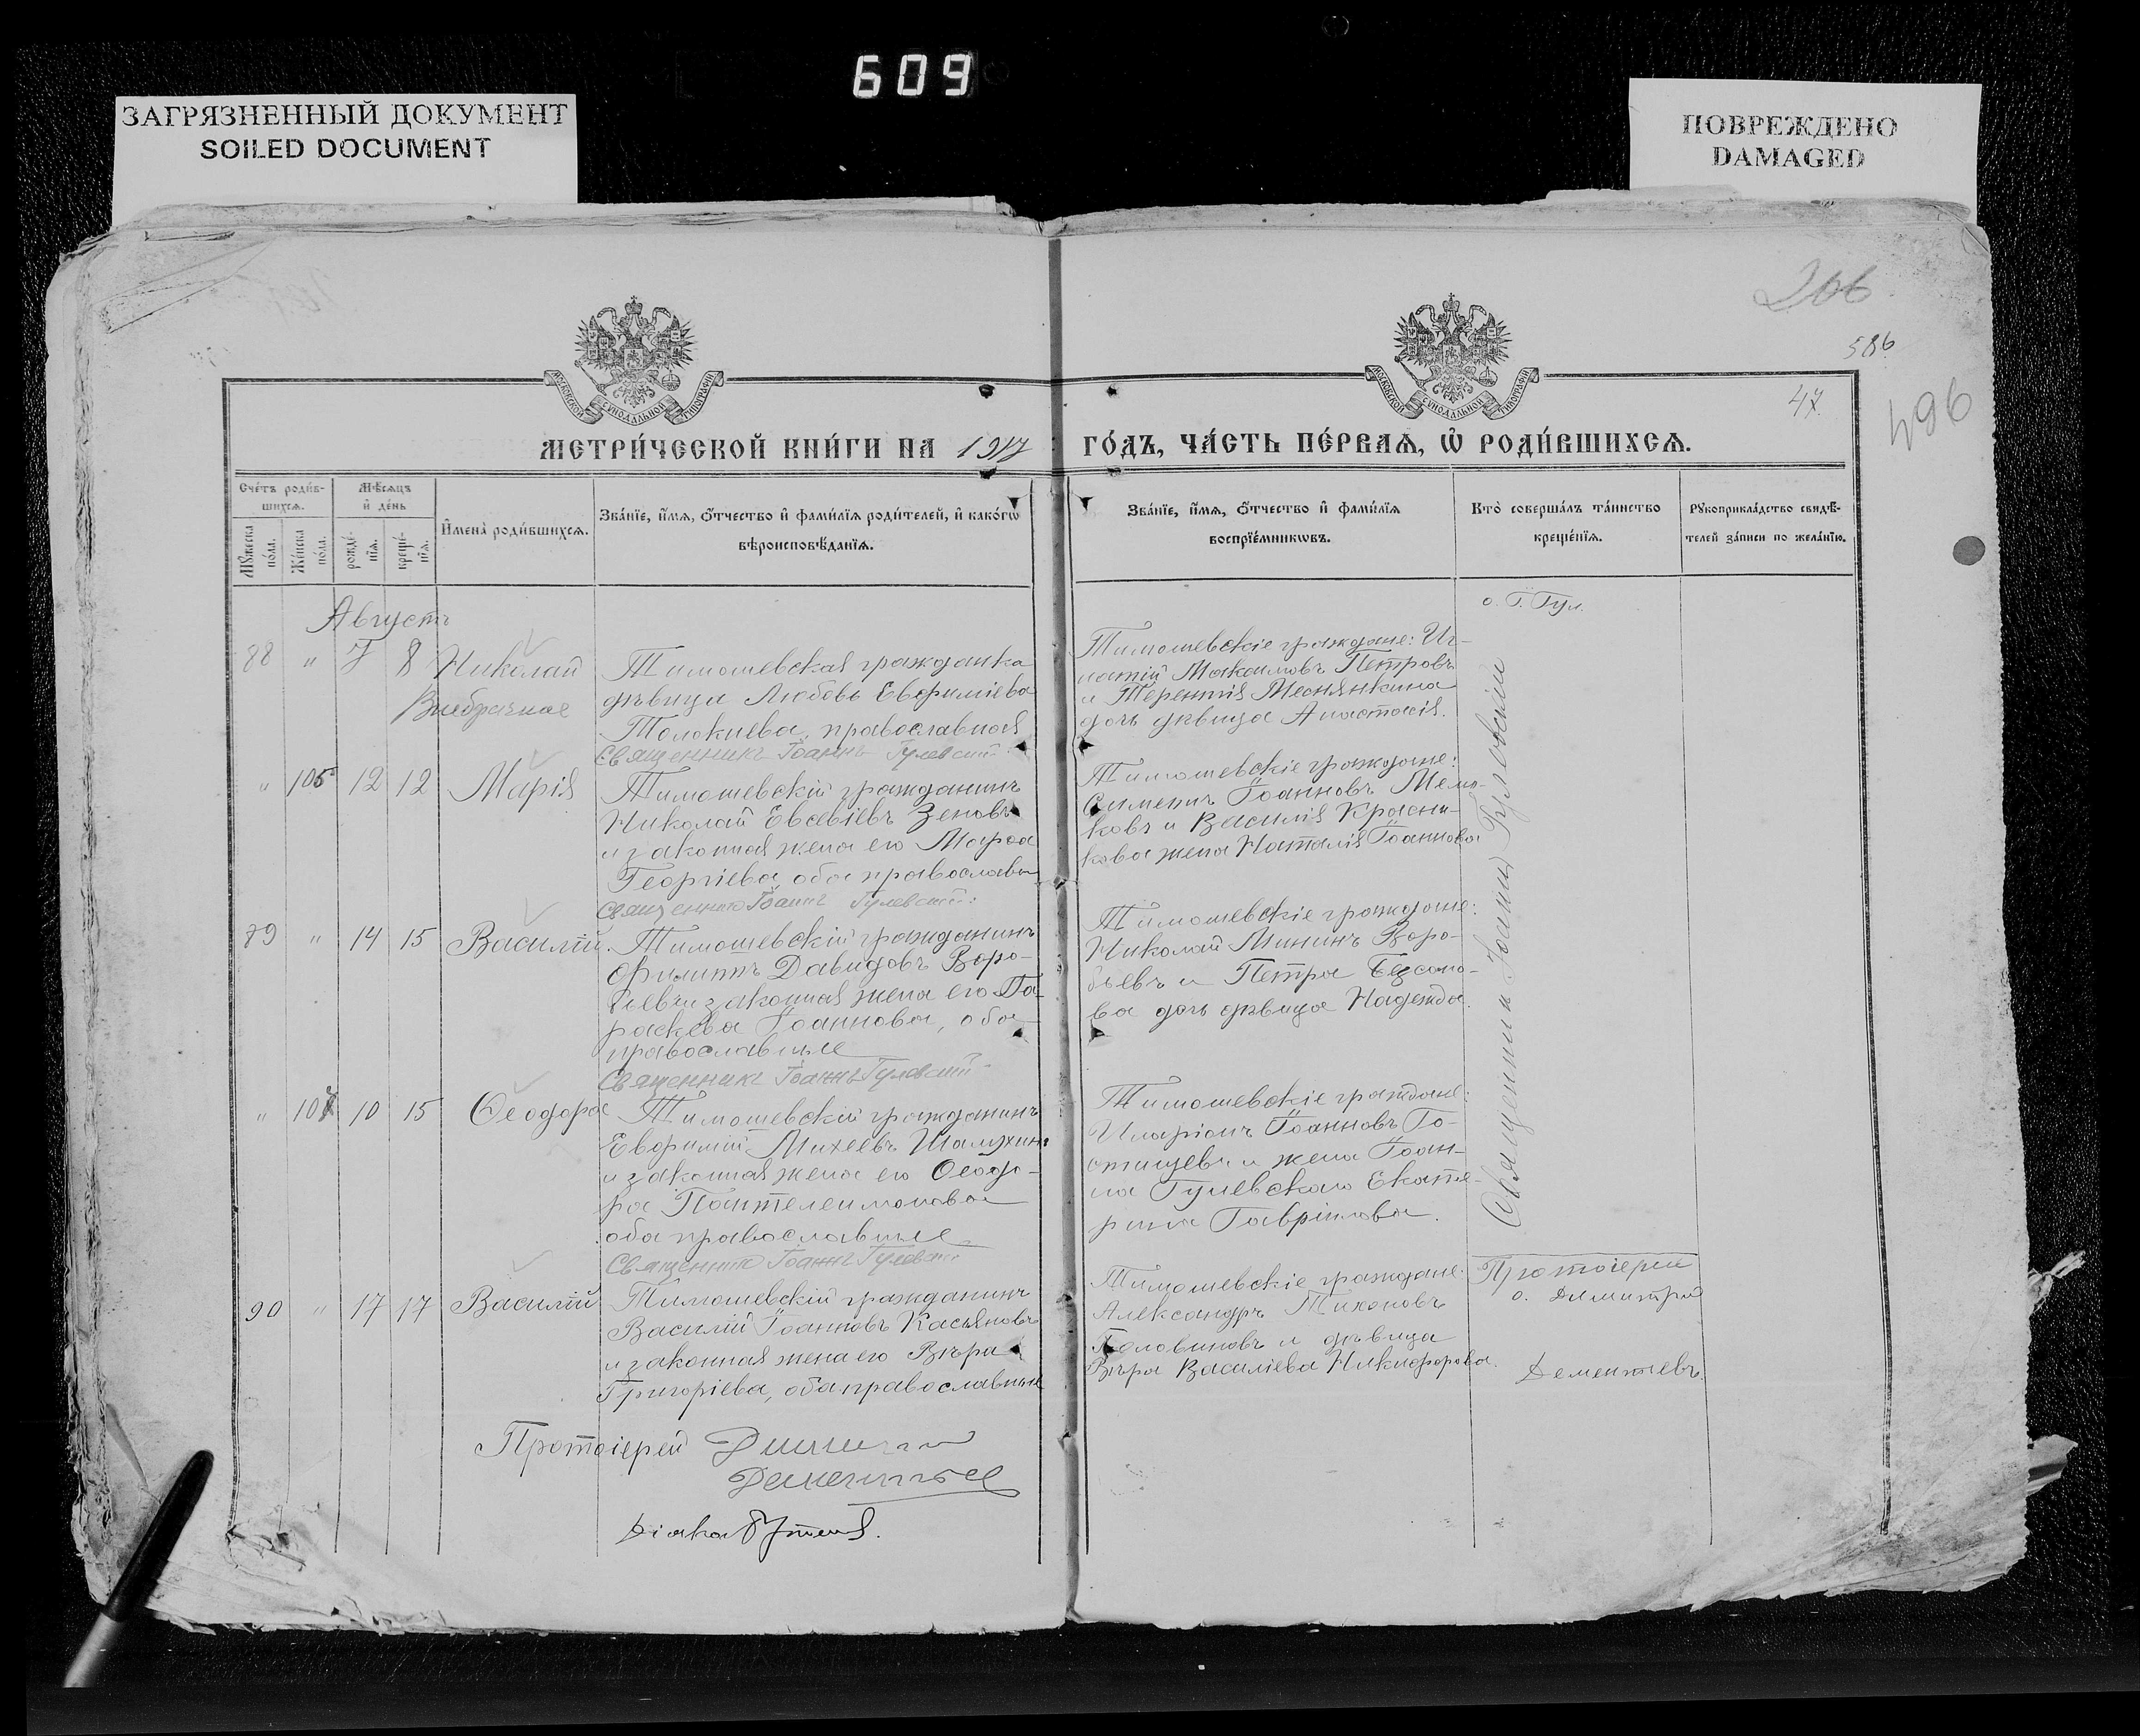 609
ЗАГРЯЗНЕННЫЙ ДОКУМЕНТ
SOILED DOCUMENT
ПОВРЕЖДЕНО
DAMAGED
206
586
47
496
МОСКОВСКОЙ СѴНОДАЛЬНОЙ ТИПОГРАФІИ
МОСКОВСКОЙ СѴНОДАЛЬНОЙ ТИПОГРАФІИ
МЕТРИ́ЧЕСКОЙ КНИ́ГИ НА 1917 ГО́ДЪ, ЧА́СТЬ ПЕ́РВАѦ, Ѡ҆ РОДИ́ВШИХСѦ.
Сче́тъ роди́в-
шихсѧ.
Мꙋ́жеска
по́ла.
Же́нска
по́ла.
Мѣ́сѧцъ
и҆ де́нь
рожде́-
нїѧ.
креще́-
нїѧ.
И҆мена̀ роди́вшихсѧ.
Зва́нїе, и҆́мѧ, ѻ҆́тчество и҆ фами́лїѧ роди́телей, и҆ како́гѡ
вѣроисповѣ́данїѧ.
Зва́нїе, и҆́мѧ, ѻ҆́тчество и҆ фами́лїѧ
воспрїе́мникѡвъ.
Кто̀ соверша́лъ та́инство
креще́нїѧ.
Рꙋкоприкла́дство свидѣ́-
телей за́писи по жела́нїю.
Августъ
о. Г. Гул.
88 " 7 8 Николай
Внебрачное
Тимошевская гражданка
дѣвица Любовь Евфиміева
Толокнева, православная
Священникъ Іоаннъ Гулевскій
Тимошевскіе граждане: Иг-
натій Максимовъ Петровъ
и Терентія Меснянкина
дочь дѣвица Анастасія.
" 105 12 12 Марія
Тимошевскій гражданинъ
Николай Евсевіевъ Зеновъ
и законная жена его Марѳа
Георгіева, оба православн.
Священникъ Іоаннъ Гулевскій
Тимошевскіе граждане:
Симеонъ Іоанновъ
ковъ и Василія Красни-
кова жена Наталія Іоаннова
89 " 14 15 Василій
Тимошевскій гражданинъ
Филиппъ Давидовъ Воро-
бьевъ и законная жена его Па-
раскева Іоаннова, оба
православные
Священникъ Іоаннъ Гулевскій
Тимошевскіе граждане:
Николай Мининъ Воро-
бьевъ и Петра Безсоно-
ва дочь дѣвица Надежда.
" 10 15 Ѳеодора
Тимошевскій гражданинъ
Евфимій Михеевъ Шалухинъ
и законная жена его Ѳеодо-
ра Пантелеимонова
оба православные
Священникъ Іоаннъ Гулевскій
Тимошевскіе граждане:
Иларіонъ Іоанновъ Го-
стищевъ и жена Іоан-
на Гулевскаго Екате-
рина Гавріилова.
Священникъ Іоаннъ Гулевскій
90 " 17 17 Василій
Тимошевскій гражданинъ
Василій Іоанновъ Касьяновъ
и законная жена его Вѣра
Григоріева, оба православные
Тимошевскіе граждане:
Александръ Тихоновъ
Головиновъ и дѣвица
Вѣра Василіева Никифорова.
Протоіерей
о. Димитрій
Дементьевъ
Протоіерей Димитрій
Дементьев